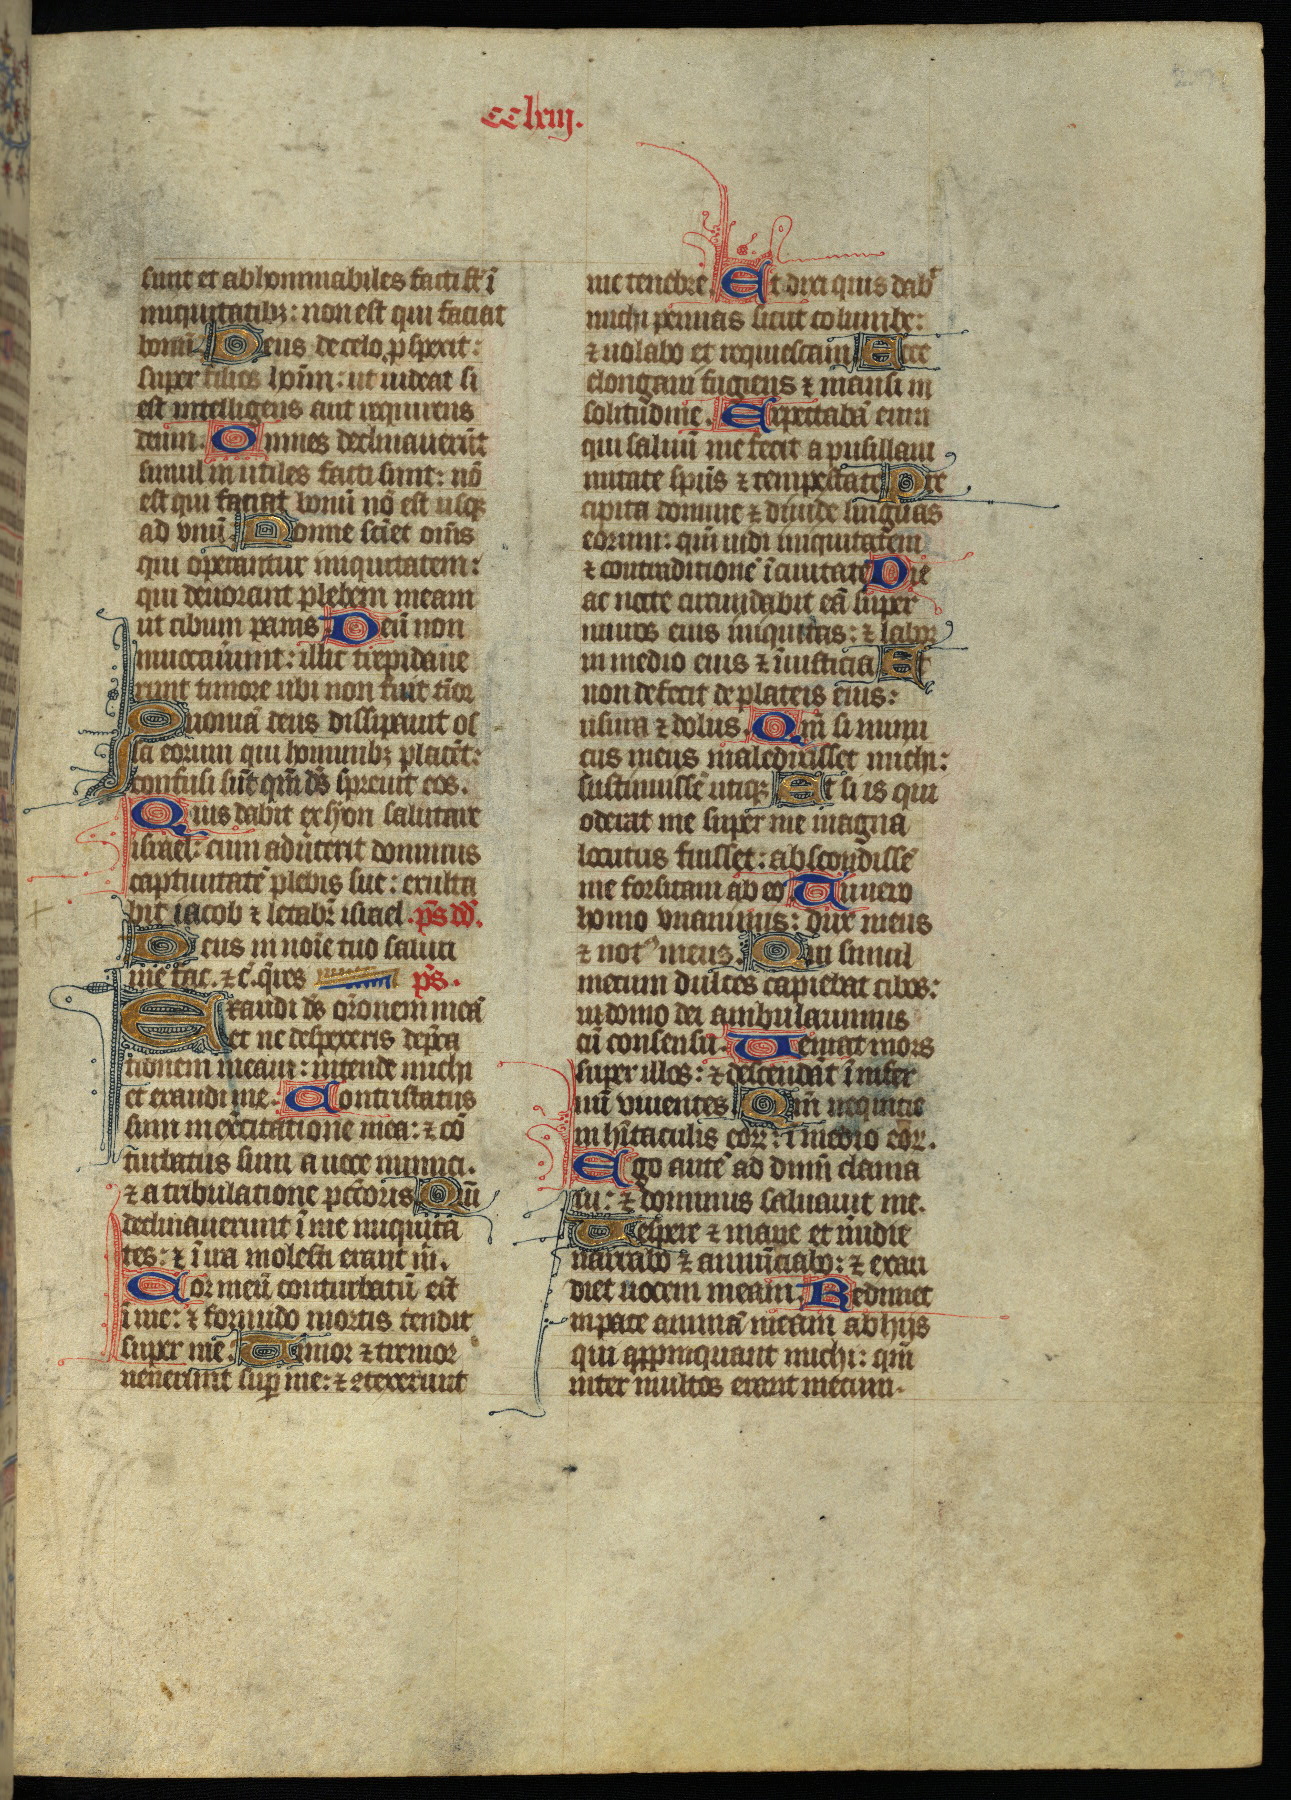 cclxiij.
sunt et abhominabiles facti st̄ ī
iniquitatibꝫ: non est qui faciat
bonū. Deus de celo ꝓspexit:
super filios hoīm: ut uideat si
est intelligens aut requirens
deum. Omnes declinauerūt
simul inutiles facti sunt: nō
est qui faciat bonū nō est usqꝫ
ad vnū. Nonne scīēt om̄s
qui operantur iniquitatem:
qui deuorant plebem meam
ut cibum panis Deū non
inuocauerunt: illic trepidaue
runt timore ubi non fuit tīor
Quoniā deus dissipauit os
sa eorum qui hominibꝫ placēt:
confusi sūt qm̄ ds̄ spreuit eos.
Quis dabit ex syon salutare
israel: cum aduterit dominus
captiuitatē plebis sue: exulta
bit iacob ⁊ letabr̄ israel. p̄s dd̄.
Deus in noīe tuo saluū
me fac. ⁊ c̄. q̄res p̄s.
Exaudi ds̄ orōnem meā
et ne despexeris dep̄ca
tionem meam: intende michi
et exaudi me. Contristatus
sum in exercitatione mea: ⁊ cō
turbatus sum a uoce inimici.
⁊ a tribulatione pctōris Qm̄
declinauerunt ī me iniquita
tes: ⁊ ī ira molesti erant m̄.
Cor meū conturbatū est
ī me: ⁊ formido mortis cecidit
super me. Timor ⁊ tremor
uenerunt suꝑ me: ⁊ ꝯtexerunt
me tenebre. Et dixi quis dabit
michi pennas sicut columbe:
⁊ uolabo et requiescam Ecce
elongaui fugiens ⁊ mansi in
solitudine. Expectabā eum
qui saluū me fecit a pusillani
mitate sp̄us ⁊ tempestate Pre
cipita domine ⁊ diuide linguas
eorum: qm̄ uidi iniquitatem
⁊ contradictionē ī ciuitate Die
ac nocte circūdabit eā super
muros eius iniquitas: ⁊ labor
in medio eius ⁊ īiusticia Et
non defecit de plateis eius:
usura ⁊ dolus. Qm̄ si inimi
cus meus maledixisset michi:
sustinuissē utiqꝫ Et si is qui
oderat me super me magna
locutus fuisset: abscondissē
me forsitam ab eo Tu uero
homo vnanimis: dux meus
⁊ notꝰ meus. Qui simul
mecum dulces capiebat cibos:
in domo dei ambulauimus
cū consensu. Ueniat mors
super illos: ⁊ descendāt ī infer
nū viuentes Qm̄ nequitie
in hītaculis eoꝝ: ī medio eoꝝ.
Ego autē ad dn̄m clama
ui: ⁊ dominus saluauit me.
Uespere ⁊ mane et m̄idie
narrabo ⁊ annūciabo: ⁊ exau
diet uocem meam. Redimet
in pace animā meam ab hijs
qui appropinquant michi: qm̄
inter multos erant mecum.